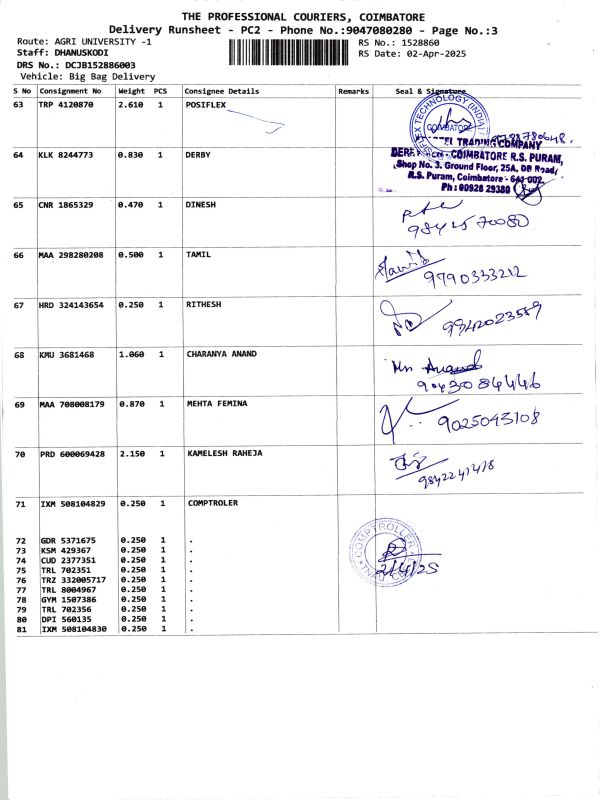 THE PROFESSIONAL COURIERS, COIMBATORE
Delivery Runsheet - PC2 - Phone No.:9047080280 - Page No.:3
Route: AGRI UNIVERSITY -1
RS No.: 1528860
Staff: DHANUSKODI
RS Date: 02-Apr-2025
DRS No.: DCJB152886003
Vehicle: Big Bag Delivery
S No Consignment No Weight PCS Consignee Details Remarks Seal & Signature
63 TRP 4120870 2.610 1 POSIFLEX
COIMBATORE
TRADING COMPANY
64 KLK 8244773 0.830 1 DERBY
COIMBATORE R.S. PURAM,
Shop No. 3. Ground Floor, 25A, DB Road,
R.S. Puram, Coimbatore - 641 002.
Ph : 80928 29380
65 CNR 1865329 0.470 1 DINESH
66 MAA 298280208 0.500 1 TAMIL
9790333212
67 HRD 324143654 0.250 1 RITHESH
9942023589
68 KMU 3681468 1.060 1 CHARANYA ANAND
Anand
9043084446
69 MAA 708008179 0.870 1 MEHTA FEMINA
9025043108
70 PRD 600069428 2.150 1 KAMELESH RAHEJA
71 IXM 508104829 0.250 1 COMPTROLER
COMPTROLLER
2/4/25
72 GDR 5371675 0.250 1 .
73 KSM 429367 0.250 1 .
74 CUD 2377351 0.250 1 .
75 TRL 702351 0.250 1 .
76 TRZ 332005717 0.250 1 .
77 TRL 8004967 0.250 1 .
78 GYM 1507386 0.250 1 .
79 TRL 702356 0.250 1 .
80 DPI 560135 0.250 1 .
81 IXM 508104830 0.250 1 .